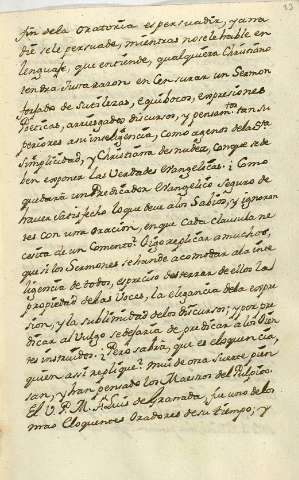 13
fin de la oratoria es persuadir, y a na
die se le persuade, mientras no se le hable en
lenguaje, que entiende, qualquiera Christiano
tendrá justa razon en censurar un Sermon
forjado de sutilezas, equibocos, expresiones
Poeticas, arriesgados discursos, y pensam.tos tan su
periores a su inteligencia, como agenos de la Sta
Simplicidad, y Christiana desnudez, con que se de
ben exponer las Verdades Evangelicas. ¿Como
quedará un Predicador Evangelico seguro de
haver satisfecho lo que deve a los Sabios, y ignoran
tes con una Oracion, en que cada clausula ne
cesita de un Comento? Oigo replicar a muchos,
que si los Sermones se han de acomodar a la inte
ligencia de todos, es preciso desterrar de ellos la
propiedad de las Voces, la elegancia de la expre
sion, y la sublimidad de los discursos; y por pre
dicar al Vulgo se dejaria de predicar a los Oien
tes instruidos. ¿Pero sabrá, que es eloquencia,
quien asi replique? mui de otra suerte pien
san, y han pensado los Maestros del Pulpito.
El V. P. M. Fr. Luis de Granada, fue uno de los
mas Eloquentes Oradores de su tiempo; y